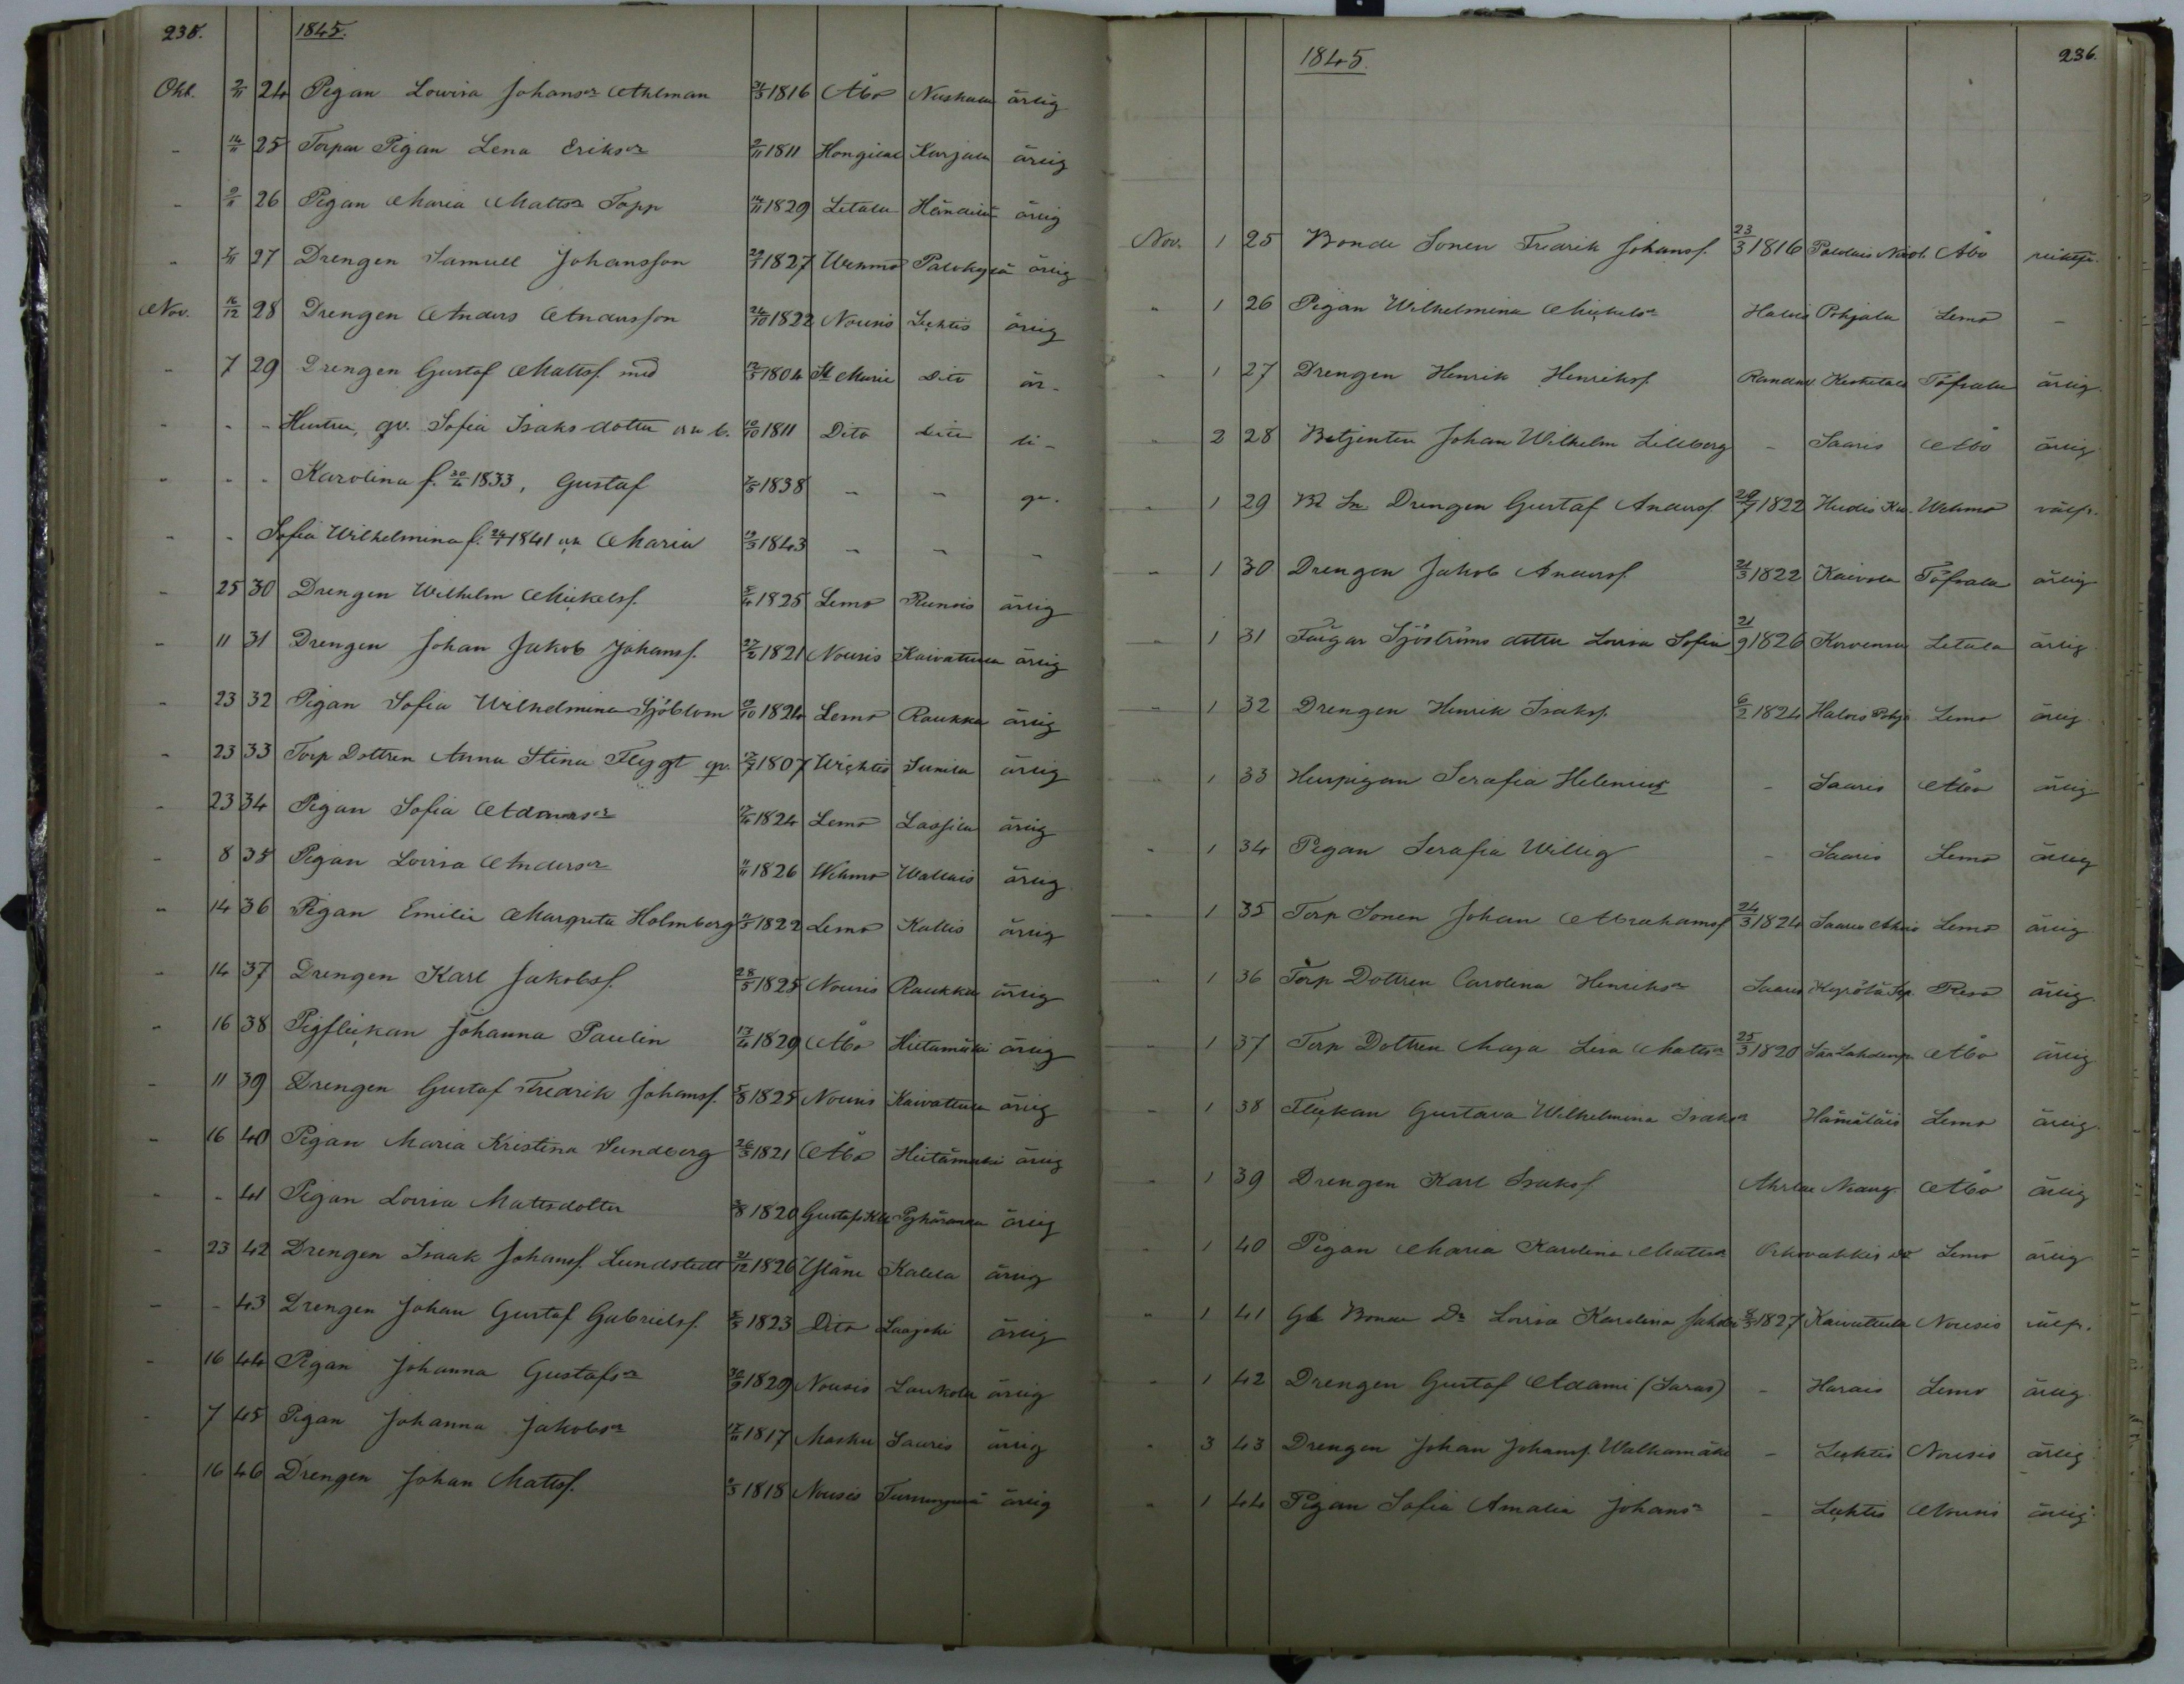 235.
1845.
Okt. 2/11 24 Pigan Lowisa Johansdr Ahlman 1816 Åbo Nuskala ärlig
- 14/11 25 Torpar Pigan Lena Eriksdr 9/11 1811 Hongilax Karjala ärlig
- 9/11 26 Pigan Maria Mattsdr Topp 1829 Letala ärlig
- 7/11 27 Drengen Samuel Johansson 1827 Wehmo Palokylä ärlig
Nov. 16/12 28 Drengen Anders Andersson 24/10 1822 Nousis Luhtis ärlig
- 7 29 Drengen Gustaf Mattsf. med 1804 St Marie Dito är-
- - - Hustru, gv. Sofia Isaks dotter 10/10 1811 Dito dito di-
- - - Karolina f. 1833, Gustaf 1838 - - gv.
- - Sofia Wilhelmina f. 1841 Maria 19/3 1843 - - -
- 25 30 Drengen Wilhelm Mickelsf. 1825 Lemo Runois ärlig
- 11 31 Drengen Johan Jakob Johansf. 27/2 1821 Nousis Kaivattula ärlig
- 23 32 Pigan Sofia Wilhelmina Sjöblom 1824 Lemo Raukka ärlig
- 23 33 Torp Dottren Anna Stina Flygt gv. 1807 Wichtis Sunila ärlig
- 23 34 Pigan Sofia Adamsdr 1824 Lemo Lassila ärlig
- 8 35 Pigan Lovisa Andersdr 1826 Wehmo Wallais ärlig
- 14 36 Pigan Emilia Margreta Holmberg 1822 Lemo Kallis ärlig
- 14 37 Drengen Karl Jakobsf. 28/5 1825 Nousis Raukka ärlig
- 16 38 Pigflickan Johanna Paulin 1829 Åbo Hietamäki ärlig
- 11 39 Drengen Gustaf Fredrik Johansf. 5/8 1825 Nousis Kaivattula ärlig
- 16 40 Pigan Maria Kristina Sundberg 26/3 1821 Åbo Hietämäki ärlig
- - 41 Pigan Lovisa Mattsdotter 1820 Gustafs Kll Pyhäranda ärlig
- 23 42 Drengen Isaak Johansf. Lundstedt 21/12 1826 Yläne Kalela ärlig
- - 43 Drengen Johan Gustaf Gabrielsf. 1823 Dito Laajoki ärlig
- 16 44 Pigan Johanna Gustafsdr 1829 Nousis Laukola ärlig
- 7 45 Pigan Johanna Jakobsdr 1817 Masku Saaris ärlig
- 16 46 Drengen Johan Mattsf. 1818 Nousis ärlig
1845.
236.
Nov. 1 25 Bonde Sonen Fredrik Johansf. 23/3 1816 Palolais Åbo
- 1 26 Pigan Wilhelmina Mickelsdr Halois Pohjala Lemo -
- 1 27 Drengen Henrik Henriksf. Kesketalo Töfsala ärlig
- 2 28 Betjenten Johan Wilhelm Lillberg - Saaris Åbo ärlig
- 1 29 Bd Sn. Drengen Gustaf Andersf. 1822 Wehmo välf.
- 1 30 Drengen Jakob Andersf. 21/3 1822 Kaivola Töfsala ärlig
- 1 31 Färgar Sjöströms dotter Lovisa Sofia 21/9 1826 Korvensu Letala ärlig
- 1 32 Drengen Henrik Isaksf. 6/2 1824 Halois Pohj. Lemo ärlig
- 1 33 Huspigan Serafia Helenius - Saaris Åbo ärlig
- 1 34 Pigan Serafia Willig - Saaris Lemo ärlig
- 1 35 Torp Sonen Johan Abrahamsf 24/3 1824 Saaris Lemo ärlig
- 1 36 Torp Dottren Carolina Henriksdr Saaris Kyrölä Reso ärlig
- 1 37 Torp Dottren Maja Lisa Mattsdr 25/3 1820 Åbo ärlig
- 1 38 Flickan Gustava Wilhelmina Isaksdr Hämäläis Lemo ärlig
- 1 39 Drengen Karl Isaksf. Åbo ärlig
- 1 40 Pigan Maria Karolina Mattsdr Lemo ärlig
- 1 41 Bonde Dr Lovisa Karolina 1827 Kaivattula Nousis välf.
- 1 42 Drengen Gustaf Adami (Saras) - Harais Lemo ärlig
- 3 43 Drengen Johan Johansf. Walhamäki - Luhtis Nousis ärlig
- 1 44 Pigan Sofia Amalia Johansdr - Luhtis Nousis ärlig